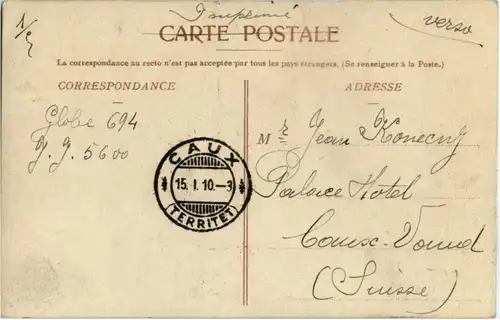 Imprimé
verso
CARTE POSTALE
La correspondance au recto n'est pas acceptée par tous les pays étrangers. (Se renseigner à la Poste.)
CORRESPONDANCE
ADRESSE
Globe 694
J. J. 5600
Mr Jean Konecny
Palace Hotel
Caux-Vaud
(Suisse)
CAUX
15. I. 10.-3
(TERRITET)